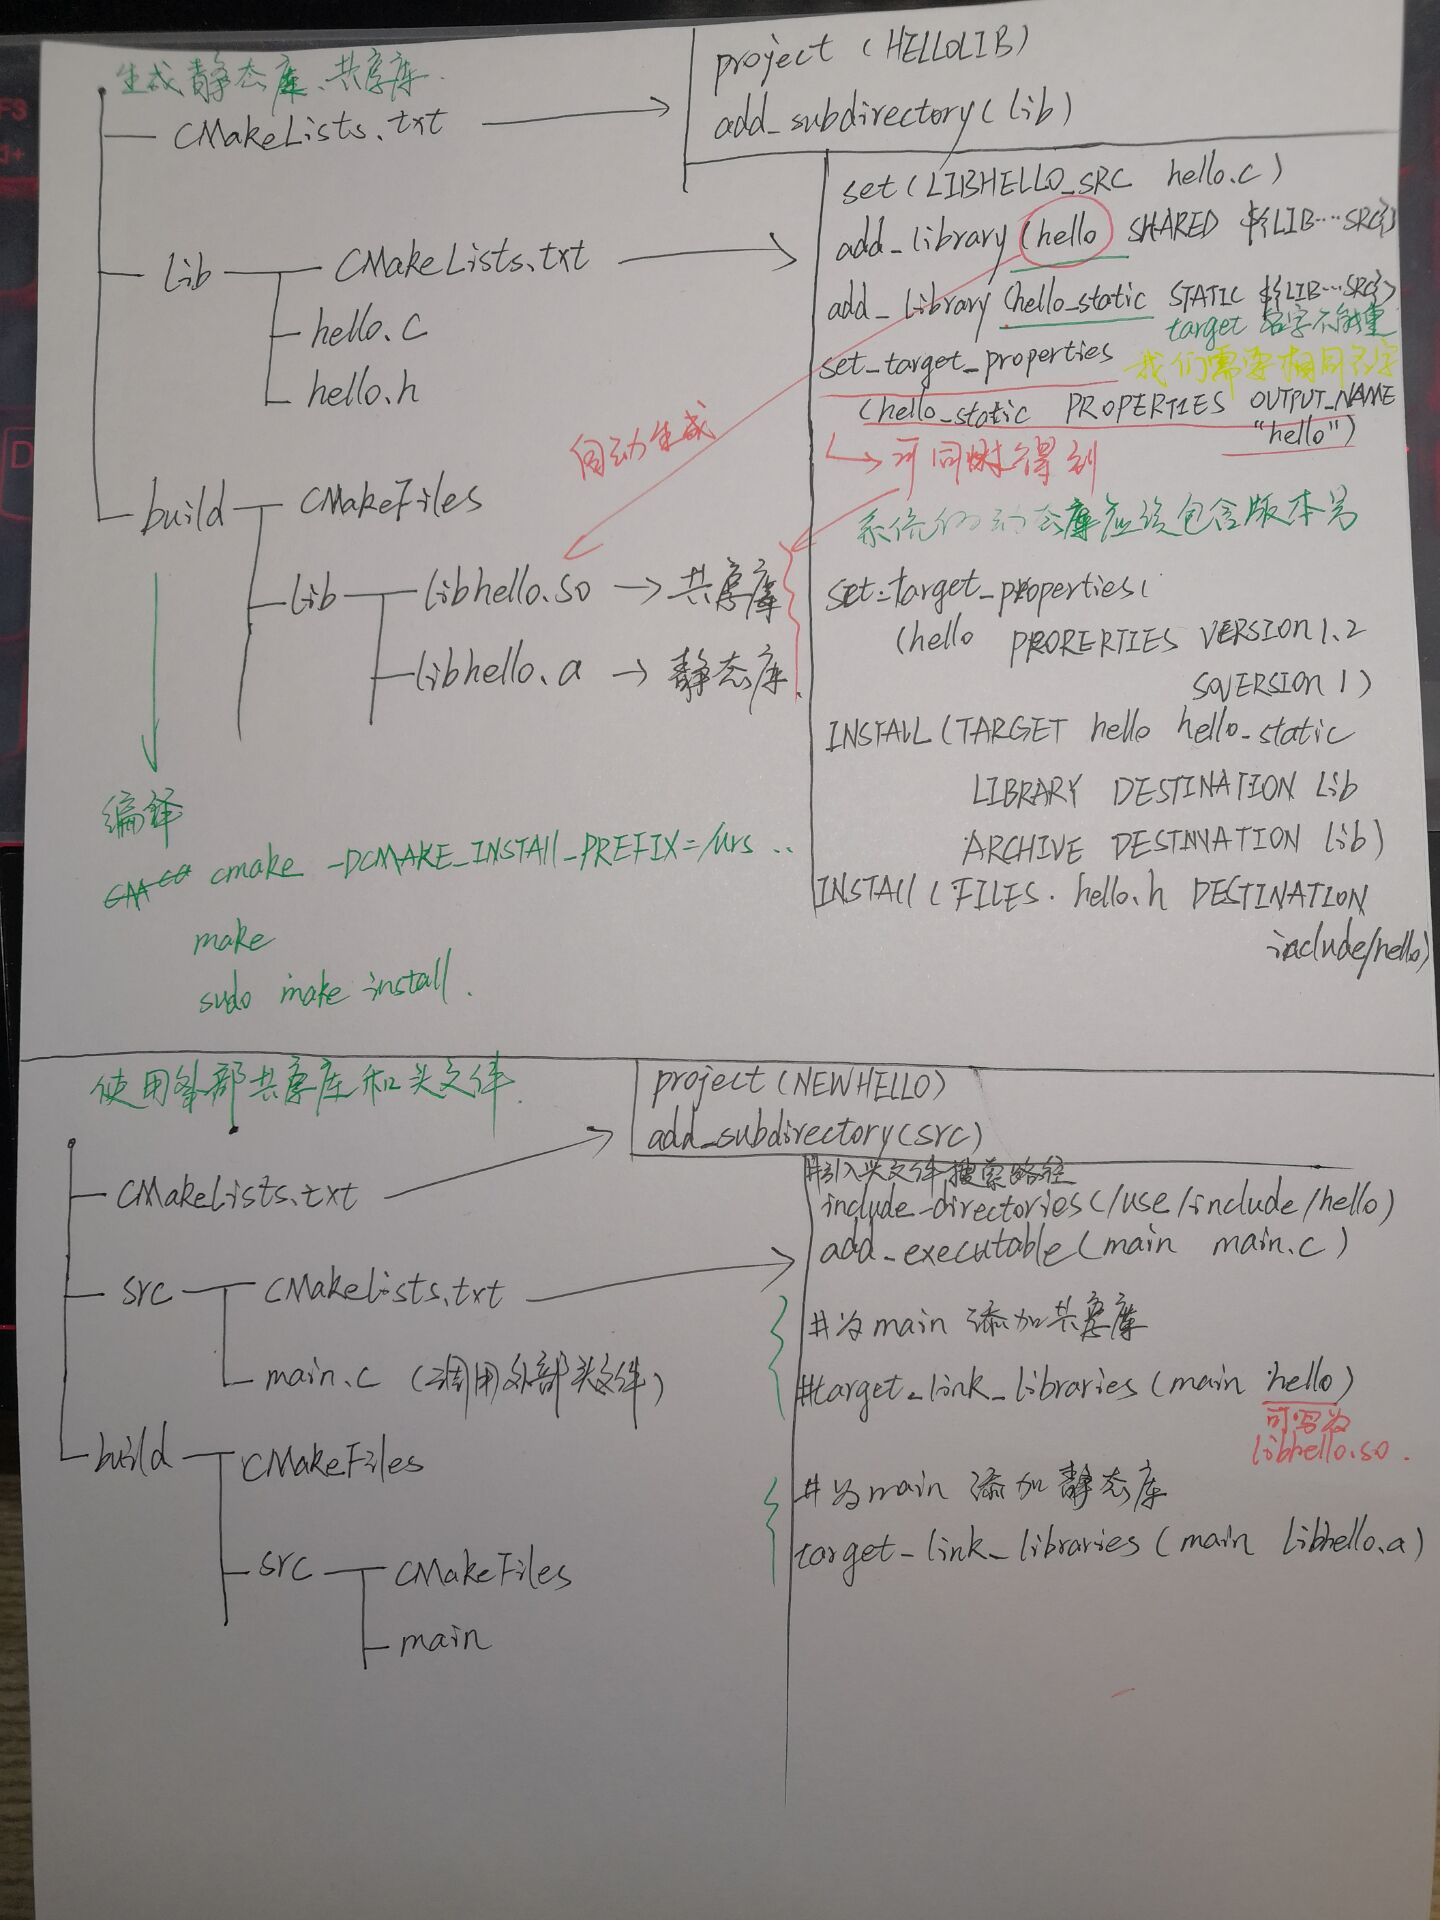 生成静态库、共享库.
CMakeLists.txt
project (HELLOLIB)
add_subdirectory(lib)
lib
CMakeLists.txt
hello.c
hello.h
set(LIBHELLO_SRC hello.c)
add_library (hello SHARED ${LIB...SRC})
add_library (hello_static STATIC ${LIB...SRC})
target 名字不能重
set_target_properties
我们需要相同名字
(hello_static PROPERTIES OUTPUT_NAME
"hello")
自动生成
可同时得到
系统的动态库应该包含版本号
build
CMakeFiles
lib
libhello.so → 共享库
libhello.a → 静态库
set_target_properties(
(hello PRORERTIES VERSION 1.2
SOVERSION 1)
INSTALL (TARGET hello hello_static
LIBRARY DESTINATION lib
ARCHIVE DESTINATION lib)
INSTALL (FILES. hello.h DESTINATION
include/hello)
编译
cmake -DCMAKE_INSTAll_PREFIX=/urs ..
make
sudo make install.
使用外部共享库和头文件.
CMakeLists.txt
project (NEWHELLO)
add_subdirectory(src)
src
CMakeLists.txt
main.c (调用外部头文件)
#引入头文件搜索路径
include_directories(/use/include/hello)
add_executable(main main.c)
#为main 添加共享库
#target_link_libraries(main hello)
可写为
libhello.so.
build
CMakeFiles
src
CMakeFiles
main
#为main 添加静态库
target_link_libraries (main libhello.a)
F3
D